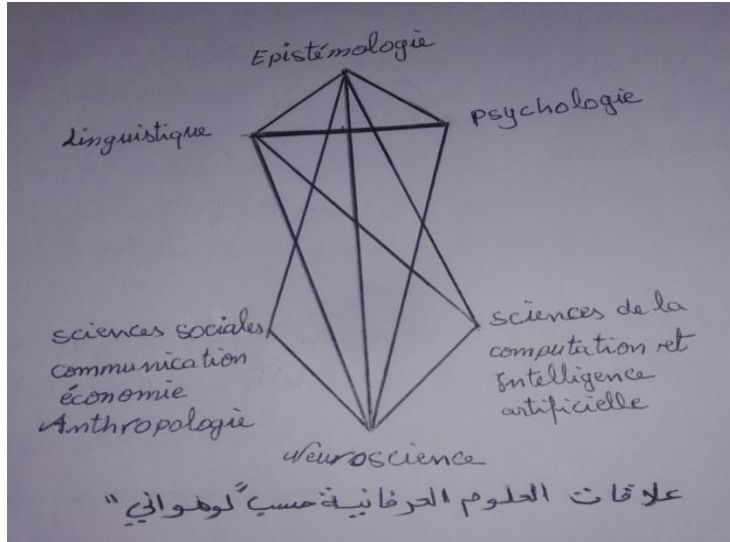 Epistémologie
Linguistique
psychologie
sciences sociales,
communication
économie
Anthropologie
sciences de la
computation et
Intelligence
artificielle
Neuroscience
علاقات العلوم العرفانية حسب "لوهواني"